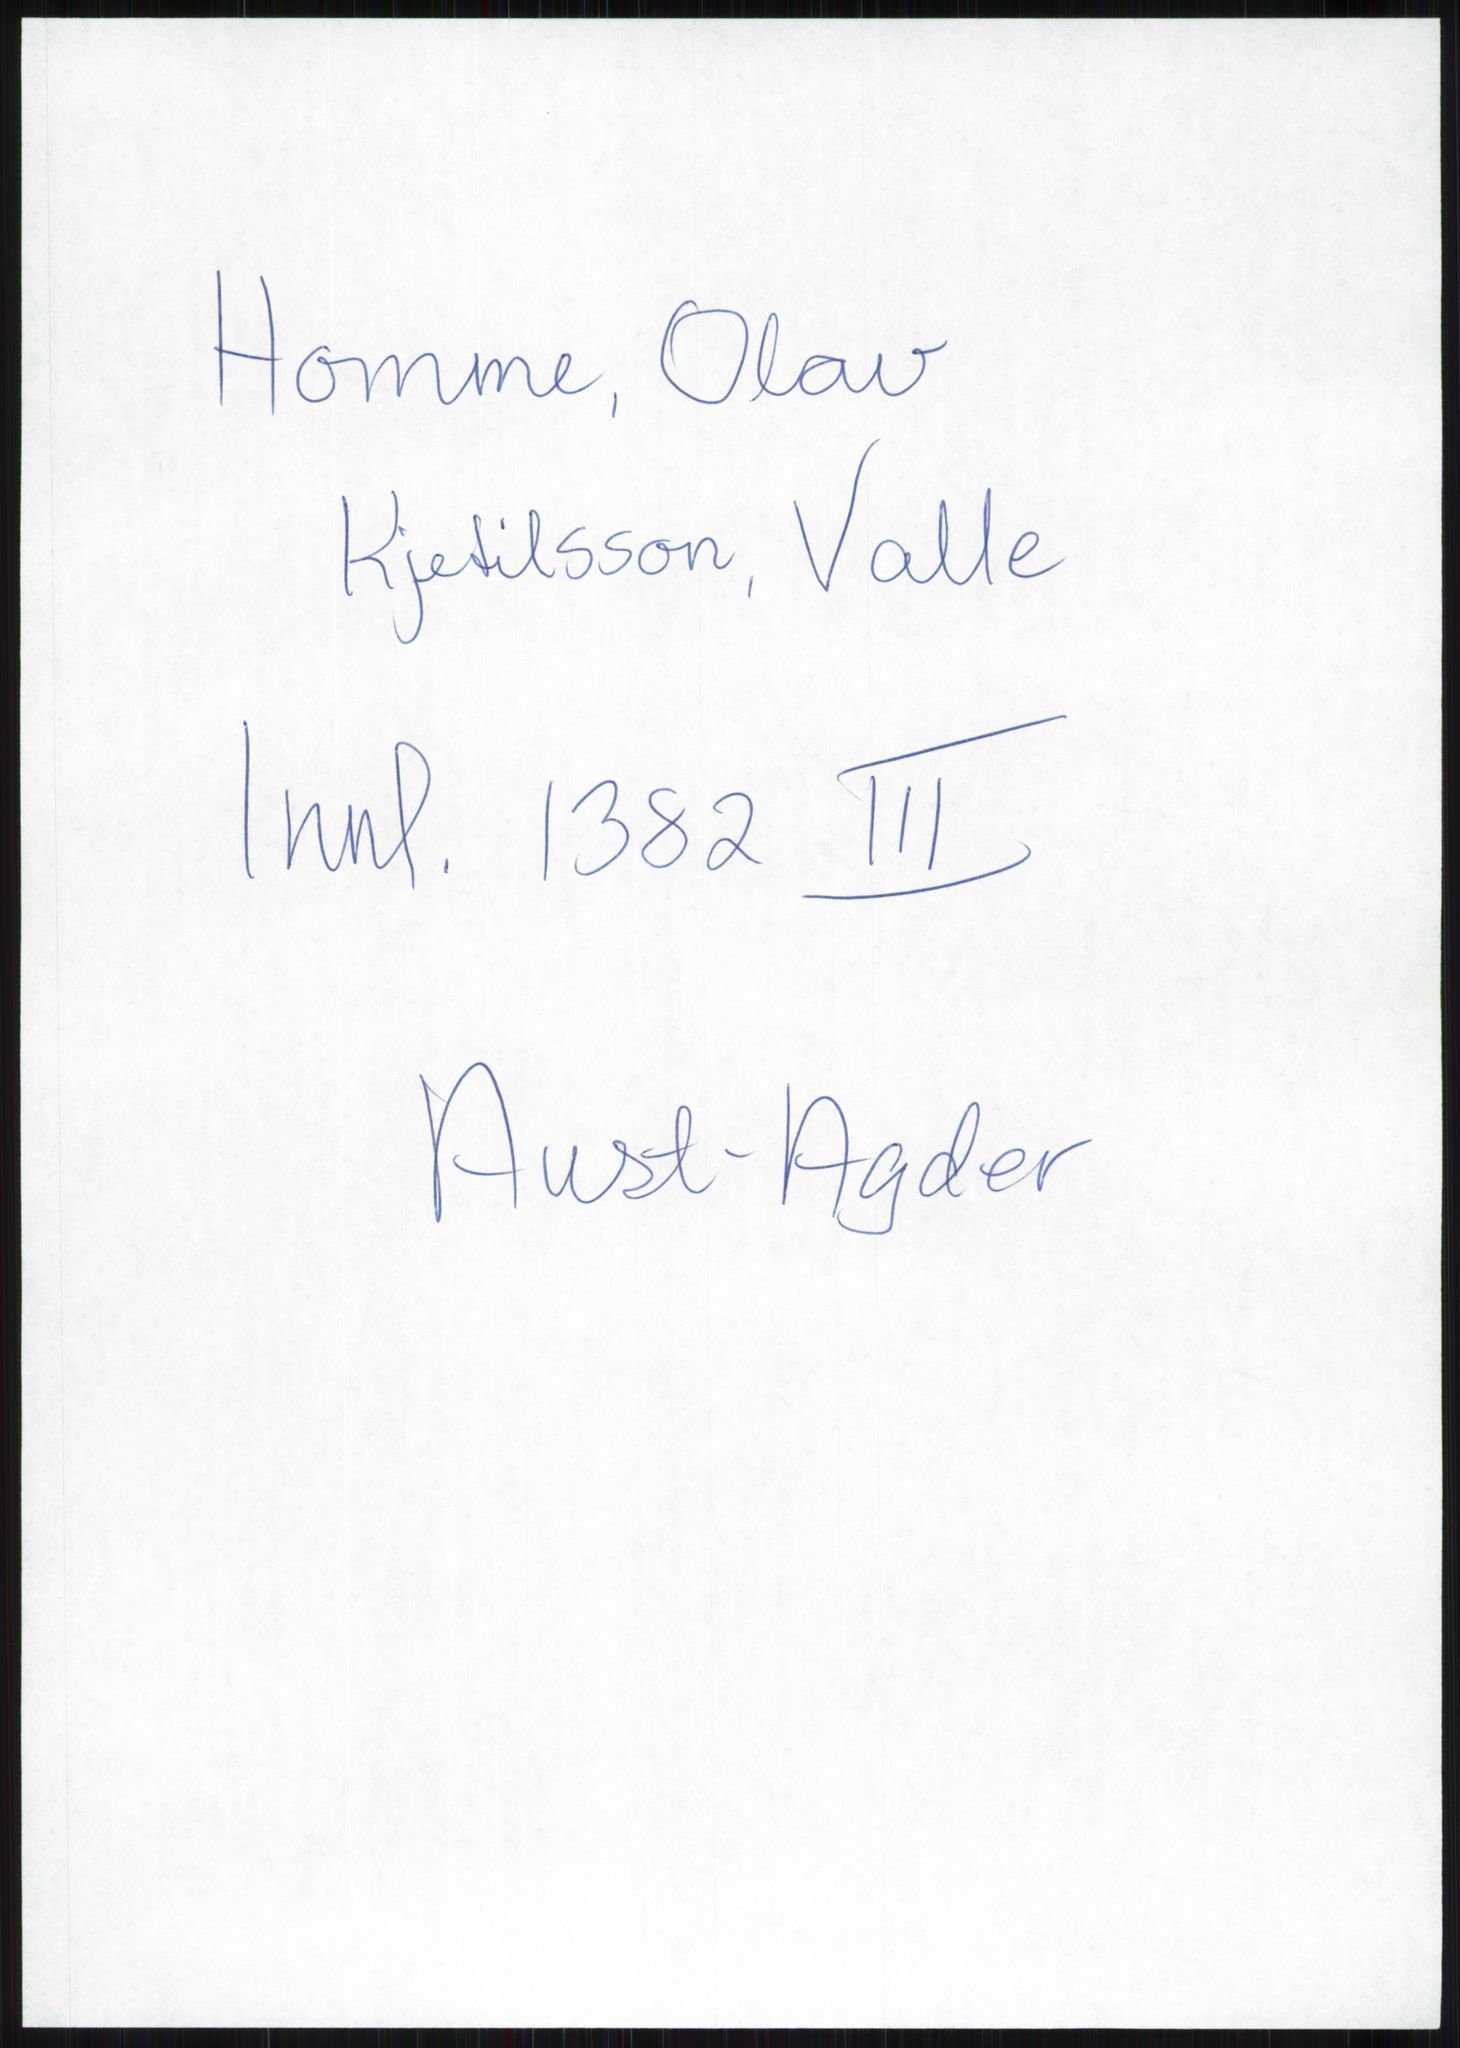 Homme, Olav
Kjetilsson, Valle
Innl. 1382 III
Aust-Agder